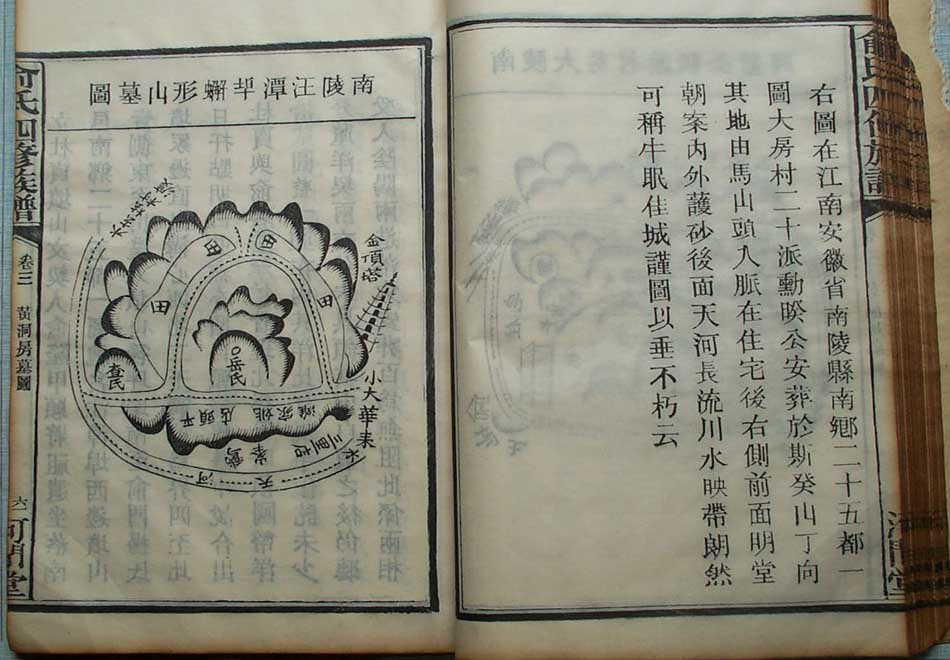 右圖在江南安徽省南陵縣南鄉二十五都一
圖大房村二十派勳暌公安葬於斯癸山丁向
其地由馬山頭入脈在住宅後右側前面明堂
朝案內外護砂後面天河長流川水映帶朗然
可稱牛眠佳城謹圖以垂不朽云
南陵汪潭坦螄形山墓圖
金頂塔
田
田
田
田
岳氏
查氏
小大華來水
平頭店姚家灘
天河
俞氏四修族譜
卷三
黃洞房墓圖
六
河間堂